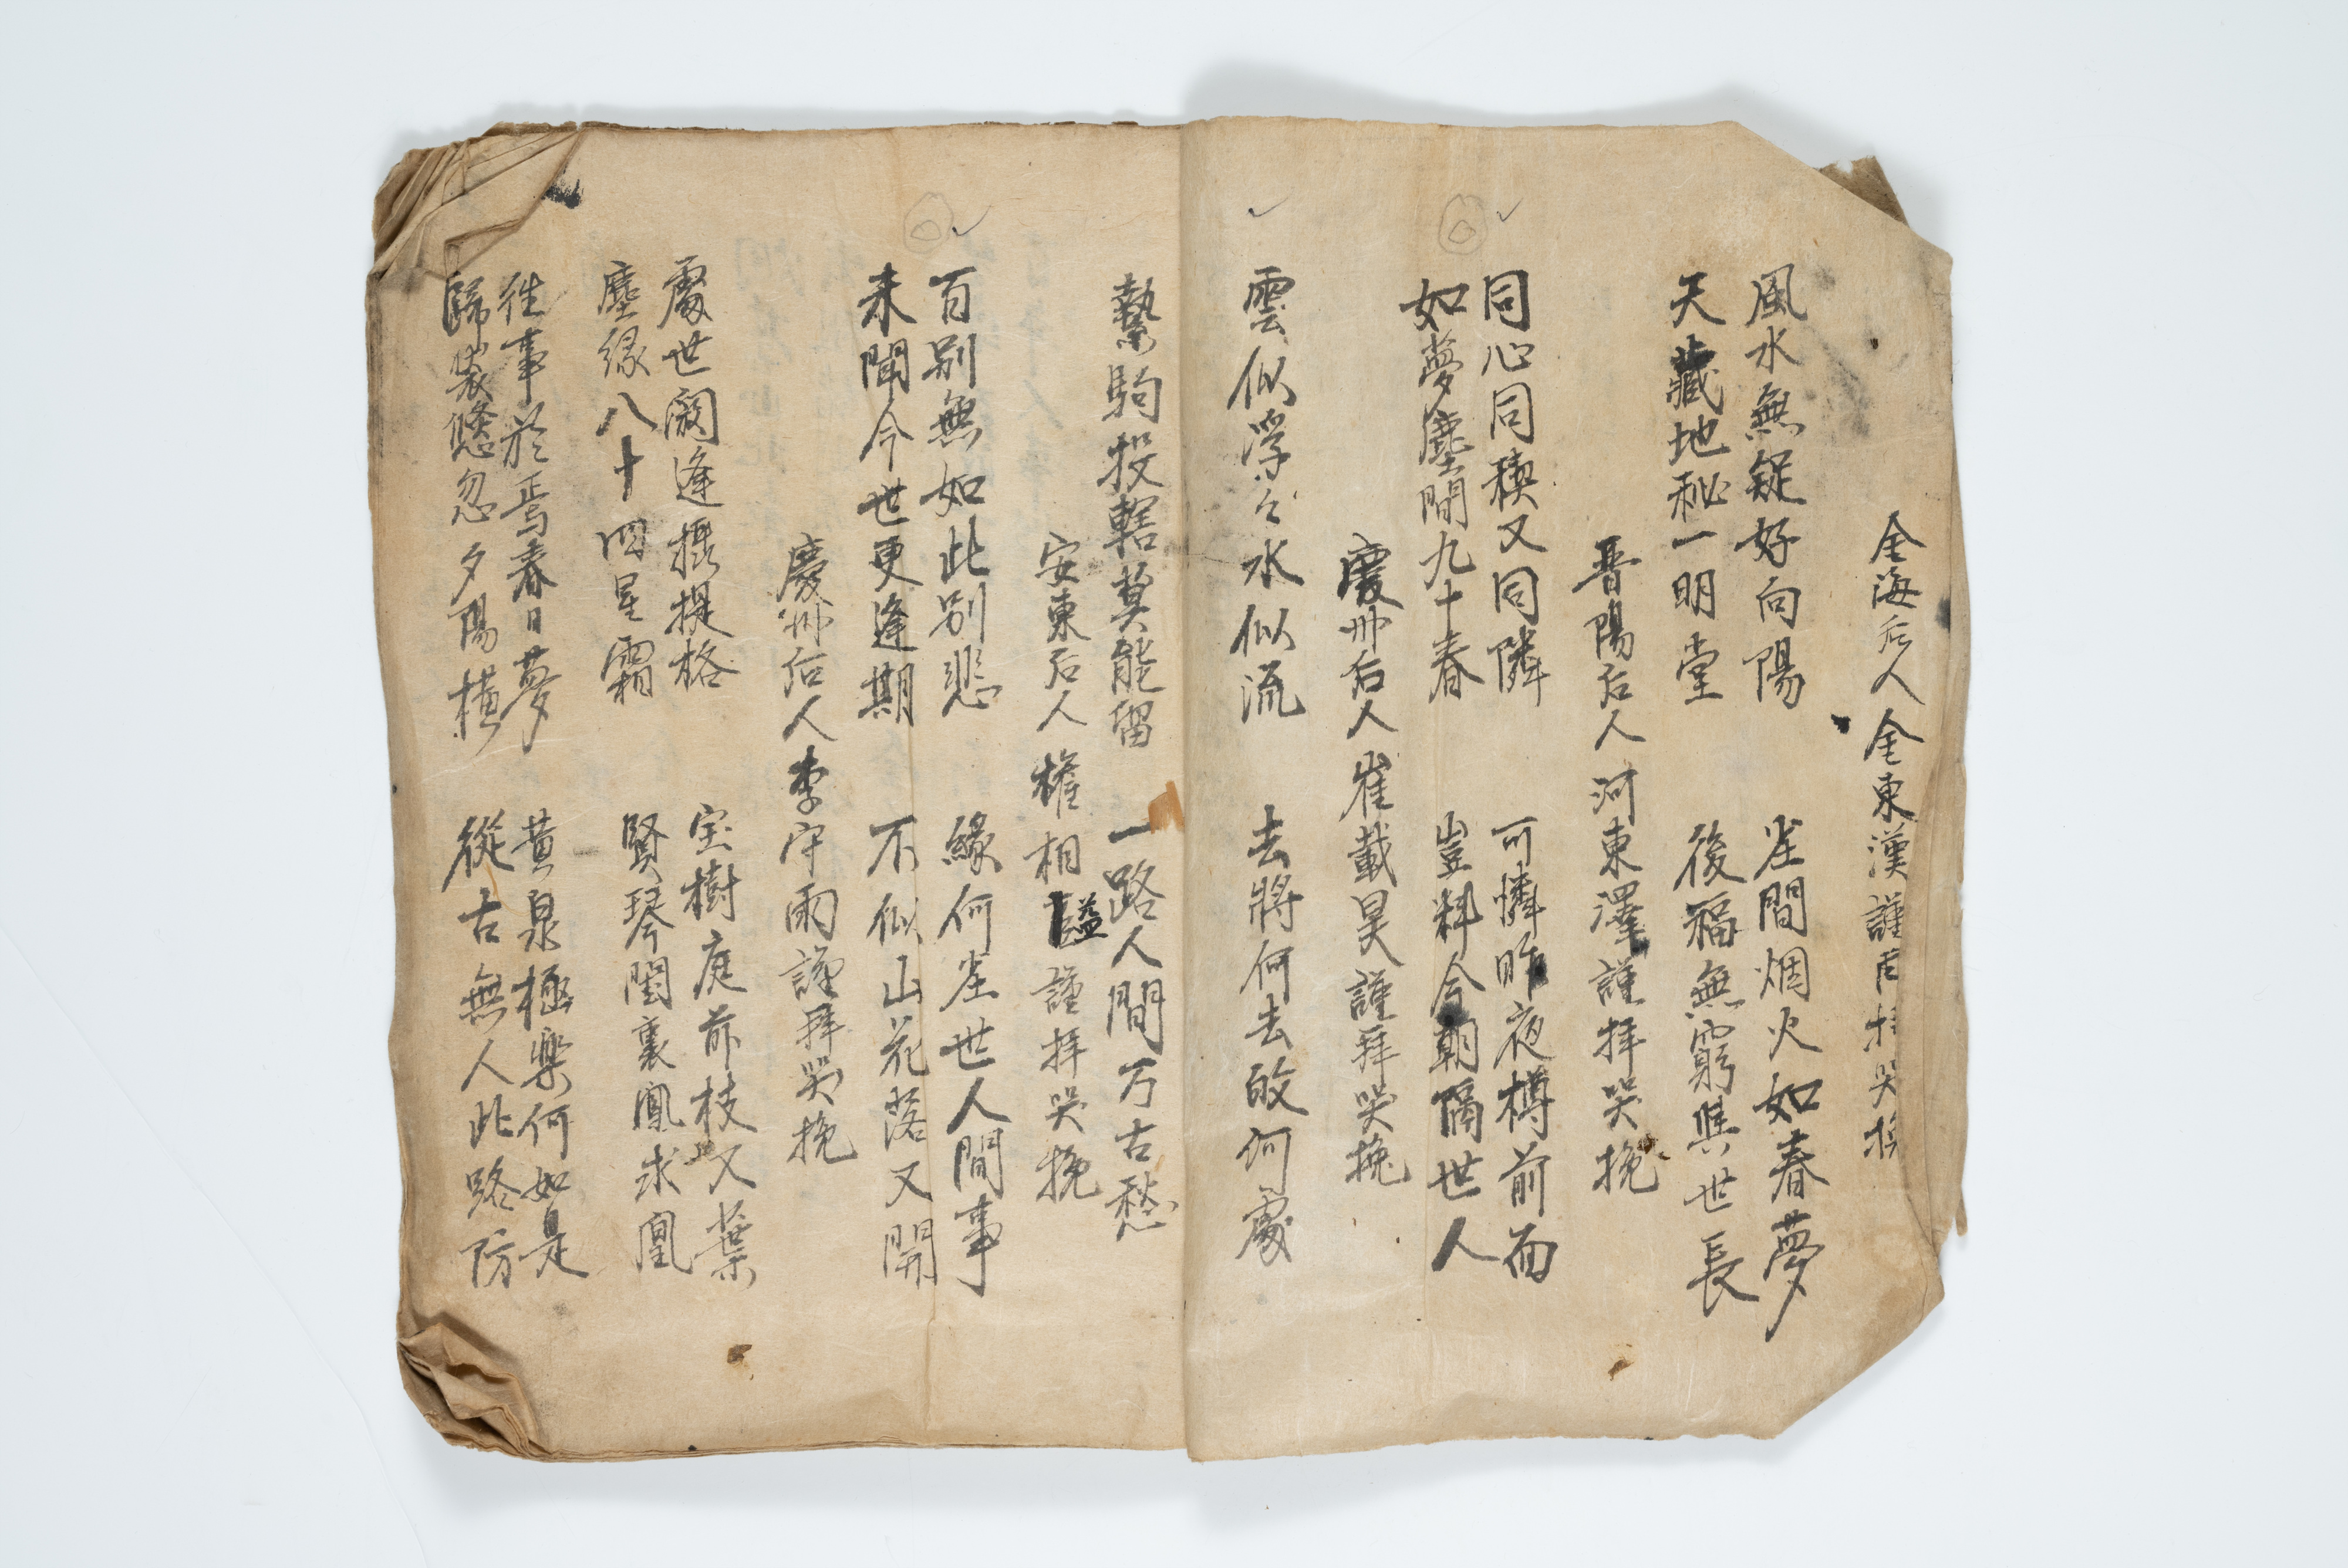 金海后人金東漢謹再拝哭挽
風水無疑好向陽 坐間烟火如春夢
天藏地秘一明堂 後福無窮與世長
晋陽后人河東澤謹拝哭挽
同心同稧又同隣 可憐昨夜樽前面
如夢塵間九十春 豈料今朝隔世人
慶州后人崔載昊謹拜哭挽
雲似浮々水似流 去將何去故何處
縶駒投轄莫能留 一路人間万古愁
安東后人權相謚謹拝哭挽
百别無如此别悲 緣何坐世人間事
未聞今世更逢期 不似山花落又開
慶州后人李守雨謹拜哭挽
處世閼逢攝提格 宝樹庭前枝又葉
塵緣八十四星霜 賢琴閨裏鳳求凰
往事於焉春日夢 黄泉極楽何如是
歸装倐忽夕陽横 從古無人此路防